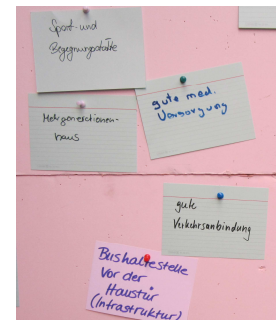 Sport- und
Begegnungsstätte
gute med.
Versorgung
Mehrgenerationen-
haus
gute
Verkehrsanbindung
Bushaltestelle
Vor der
Haustür
(Infrastruktur)